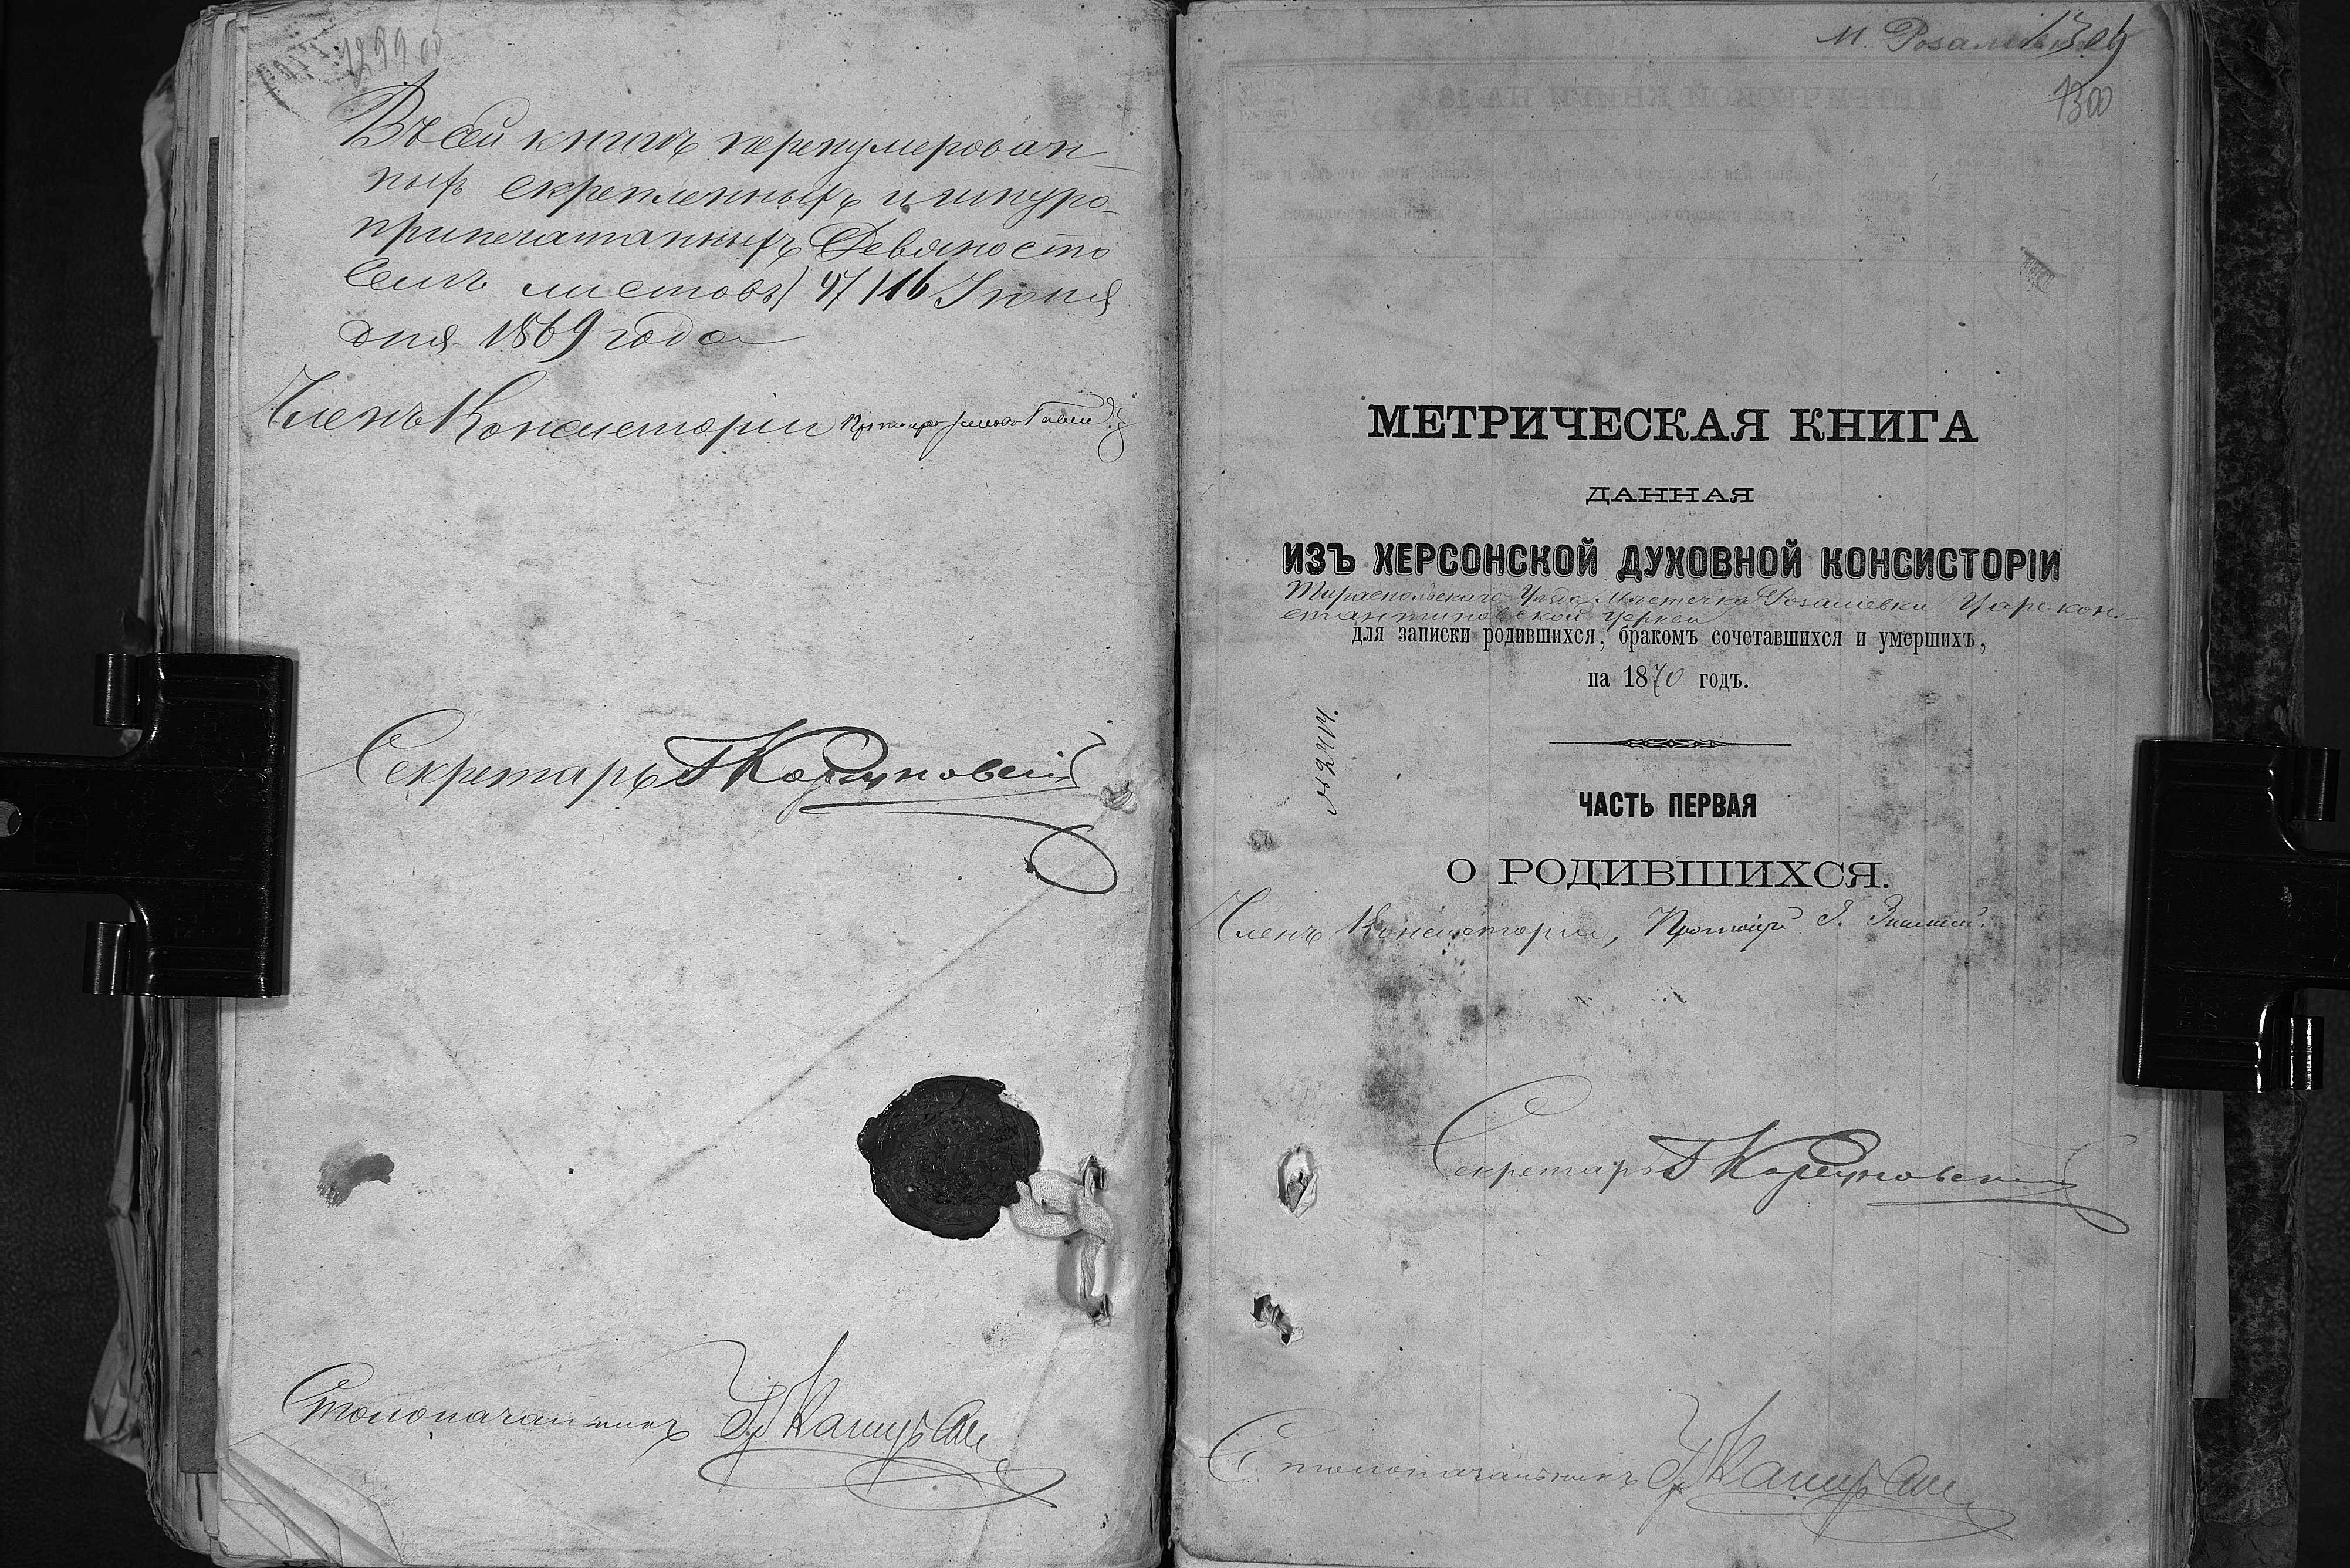 1299 об
Въ сей книгѣ перенумерован-
ныхъ скрепленныхъ и шнуро-
припечатанныхъ Девяносто
Семь листовъ) 97) 16 Іюня
дня 1869 года
Членъ Консисторіи
Секретарь Г Корчуновскій
Столоначальникъ
М. Розалиевка 1304
1300
МЕТРИЧЕСКАЯ КНИГА
ДАННАЯ
ИЗЪ ХЕРСОНСКОЙ ДУХОВНОЙ КОНСИСТОРІИ
Тираспольскаго Уезда Мѣстечка Розалиевки Царе-кон-
стантиновской Церкви
для записки родившихся, бракомъ сочетавшихся и умершихъ,
на 1870 годъ.
ЧАСТЬ ПЕРВАЯ
О РОДИВШИХСЯ.
Членъ Консисторіи, Протоіерей
Секретарь Г Корчуновскій
Столоначальникъ